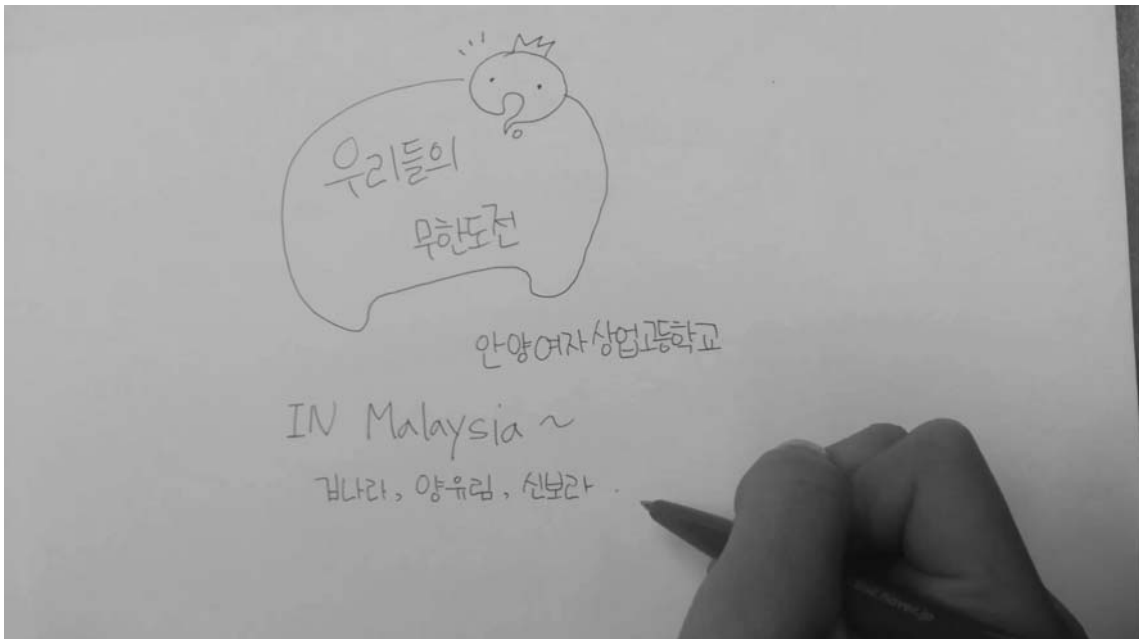 우리들의
무한도전
안양여자상업고등학교
IN Malaysia ~
겁나라, 양유림, 신보라